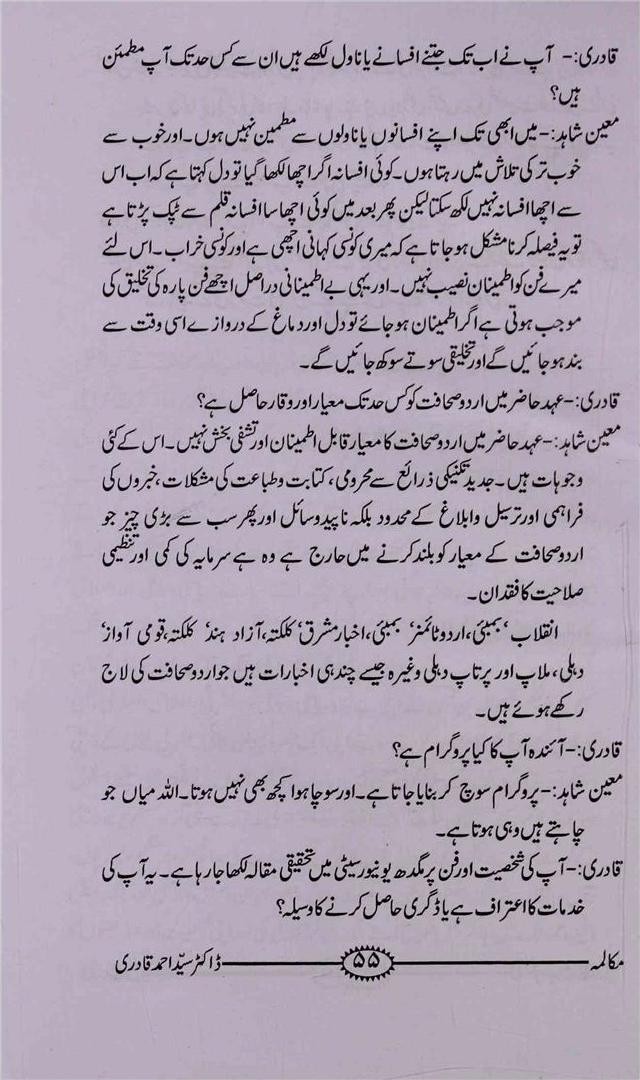 قادری:- آپ نے اب تک جتنے افسانے یا ناول لکھے ہیں ان سے کس حد تک آپ مطمئن
ہیں؟
معین شاہد:- میں ابھی تک اپنے افسانوں یا ناولوں سے مطمین نہیں ہوں۔ اور خوب سے
خوب تر کی تلاش میں رہتا ہوں۔ کوئی افسانہ اگر اچھا لکھا گیا تو دل کہتا ہے کہ اب اس
سے اچھا افسانہ نہیں لکھ سکتا لیکن پھر بعد میں کوئی اچھا سا افسانہ قلم سے ٹپک پڑتا ہے
تو یہ فیصلہ کرنا مشکل ہو جاتا ہے کہ میری کونسی کہانی اچھی ہے اور کونسی خراب۔ اس لئے
میرے فن کو اطمینان نصیب نہیں۔ اور یہی بے اطمینانی دراصل اچھے فن پارہ کی تخلیق کی
موجب ہوتی ہے اگر اطمینان ہو جائے تو دل اور دماغ کے دروازے اسی وقت سے
بند ہو جائیں گے اور تخلیقی سوتے سوکھ جائیں گے۔
قادری:- عہد حاضر میں اردو صحافت کو کس حد تک معیار اور وقار حاصل ہے؟
معین شاہد:- عہد حاضر میں اردو صحافت کا معیار قابل اطمینان اور تشفی بخش نہیں۔ اس کے کئی
وجوہات ہیں۔ جدید تکنیکی ذرائع سے محرومی، کتابت و طباعت کی مشکلات، خبروں کی
فراہمی اور ترسیل و ابلاغ کے محدود بلکہ ناپید وسائل اور پھر سب سے بڑی چیز جو
اردو صحافت کے معیار کو بلند کرنے میں حارج ہے وہ ہے سرمایہ کی کمی اور تنظیمی
صلاحیت کا فقدان۔
انقلاب ‘ بمبئی، اردو ٹائمنر‘ بمبئی، اخبار مشرق‘ کلکتہ، آزاد ہند‘ کلکتہ، قومی آواز‘
دہلی، ملاپ اور پرتاپ دہلی وغیرہ جیسے چند ہی اخبارات ہیں جو اردو صحافت کی لاج
رکھے ہوئے ہیں۔
قادری:- آئندہ آپ کا کیا پروگرام ہے؟
معین شاہد:- پروگرام سوچ کر بنایا جاتا ہے۔ اور سوچا ہوا کچھ بھی نہیں ہوتا۔ اللہ میاں جو
چاہتے ہیں وہی ہوتا ہے۔
قادری:- آپ کی شخصیت اور فن پر مگدھ یونیورسیٹی میں تحقیقی مقالہ لکھا جا رہا ہے۔ یہ آپ کی
خدمات کا اعتراف ہے یا ڈگری حاصل کرنے کا وسیلہ؟
مکالمہ ۵۵ ڈاکٹر سیّد احمد قادری